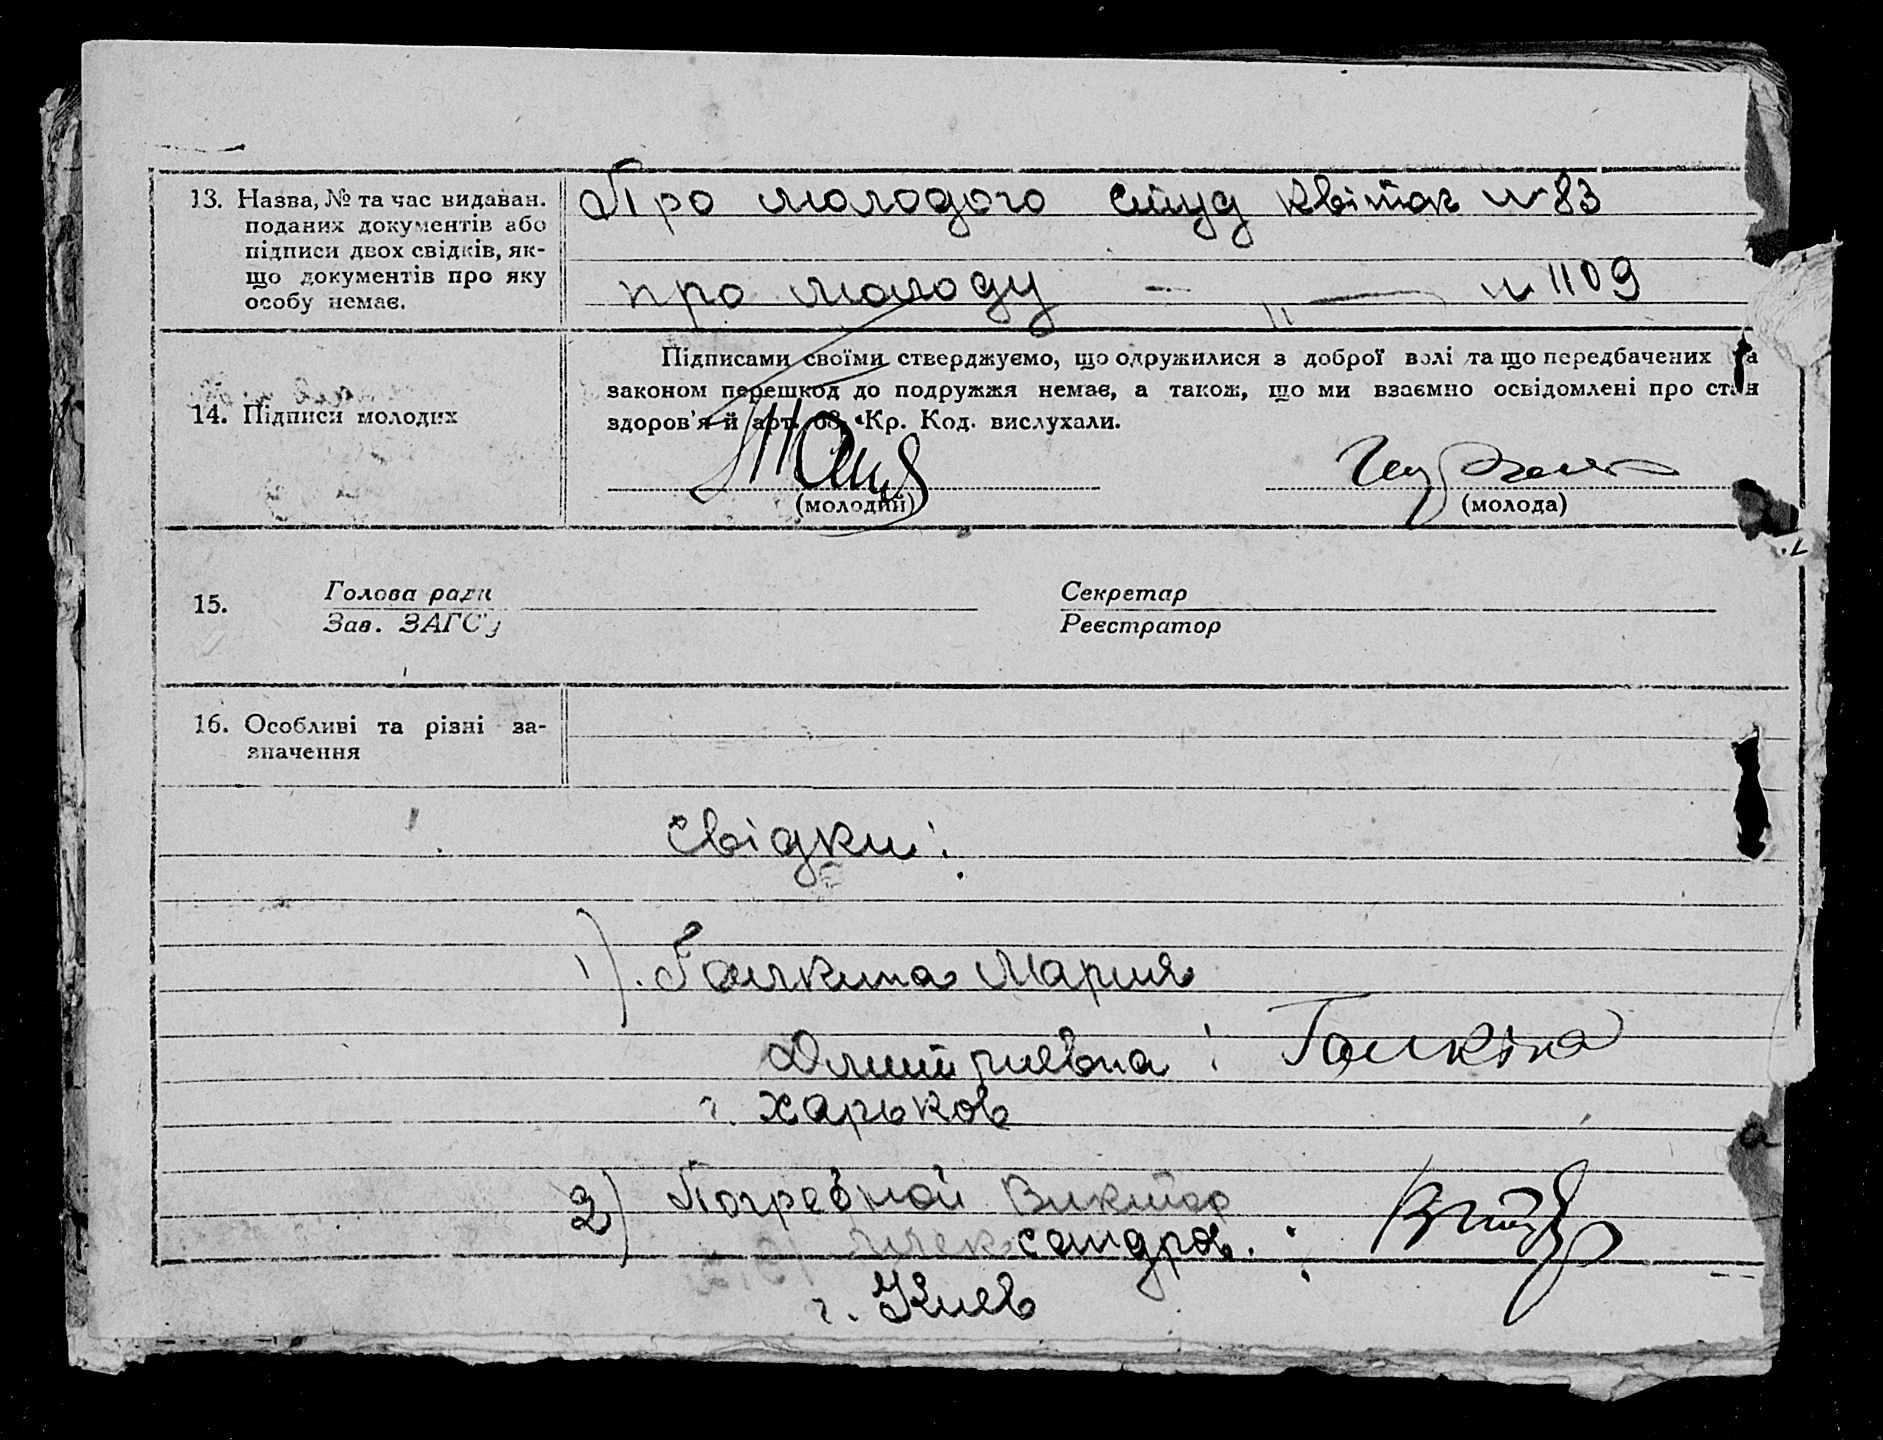 13. Назва, № та час видаван. поданих документів або підписи двох свідків, якщо документів про яку особу немає.
Про молодого студ квіток № 83
про молоду — " — № 1109
14. Підписи молодих
Підписами своїми стверджуємо, що одружилися з доброї волі та що передбачених за
законом перешкод до подружжя немає, а також, що ми взаємно освідомлені про стан
здоров'я й арт. 68 Кр. Код. вислухали.
(молодий)
(молода)
15.
Голова ради
Зав. ЗАГС'у
Секретар
Реєстратор
16. Особливі та різні зазначення
Свідки:
1). Галкина Мария
Дмитриевна : Галкіна
г. Харьков
2) Погребной Виктор
Александров. :
г. Киев